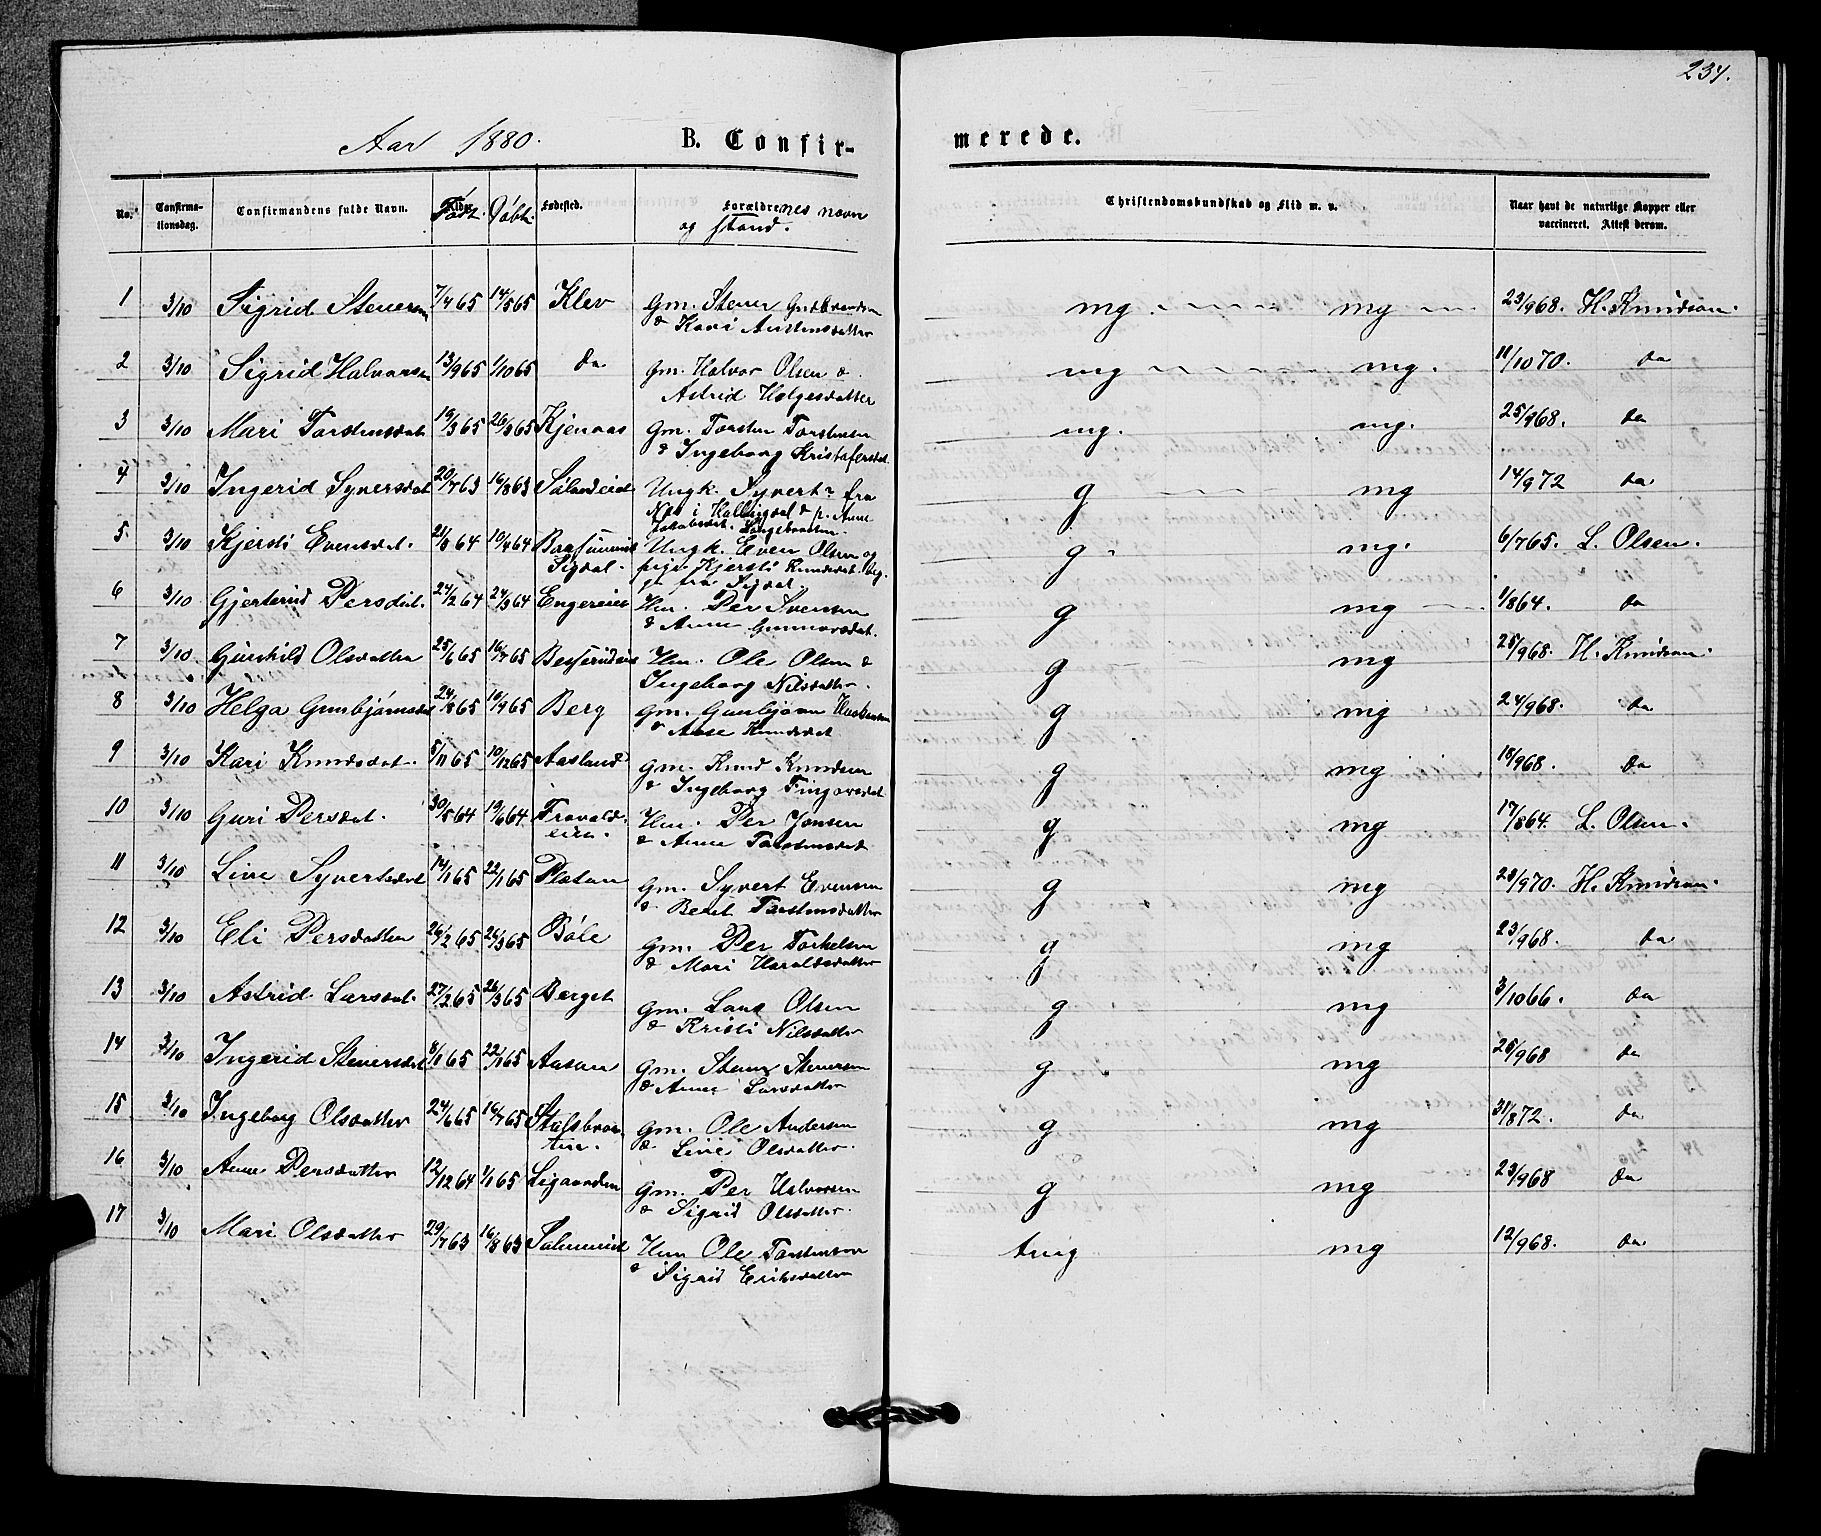 234.
Aar 1880. B. Confir-merede.
No. Confirmationsdag. Confirmandens fulde Navn. Født. Døbt. Fødested. Forældrenes navn og stand. Christendomskundskab og Flid m. v. Naar havt de naturlige Kopper eller vaccineret. Attest derom.
1 3/10 Sigrid Stenersen 7/4 65 14/5 65 Klev Gm. Stener Guldbrandsen & Kari Andensdatter mg mg 23/968. H. Knudson.
2 3/10 Sigrid Halvorsen 13/965 1/1065 Do Gm. Halvor Olsen & Astrid Helgesdatter mg mg. 11/1070. Do
3 3/10 Mari Torstensdat 19/365 26/365 Kjenaas Gm. Torsten Torstensen & Ingeborg Kristofersdat. mg. mg. 25/968. Do
4 3/10 Ingerid Syversdat 20/763 16/863 Ungk. Syvert fra Nes i Hallingdal & p. Anne Jakobsdat. g mg 14/972 Do
5 3/10 Kjersti Evensdat. 21/364 10/464 Sigdal. Ungk. Even Olsen og pige Kjersti Knudsdat. beg- ge fra Sigdal. g mg. 6/765. L. Olsen.
6 3/10 Gjertrud Persdat. 24/264 24/364 Engereiet Hm. Per Svensen & Anne Gunnarsdat. g mg 1/864. Do
7 3/10 Gunhild Olsdatter 25/665 16/765 Hm. Ole Olsen & Ingeborg Nilsdatter. g mg 25/968. H. Knudson.
8 3/10 Helga Gunbjørnsdat 24/865 10/965 Berg Gm. Gunbjørn & Anne Knudsdat. g mg 24/968. Do
9 3/10 Kari Knudsdat. 5/1165 10/1265 Aasland Gm. Knud Knudsen & Ingeborg Fingarsdat g mg 18/968. Do
10 3/10 Guri Persdat. 30/564 19/664. Frovold- eien. Hm. Per Jonsen & Anne Torstensdat g mg 17/864. L. Olsen.
11 3/10 Live Syvertsdat 14/165 22/165 Plassen Gm. Syvert Evensen & Berit Torstensdatter g mg 23/970. H. Knudson.
12 3/10 Eli Persdatter 26/265 26/365 Bøle Gm. Per Torkelsen & Mari Haraldsdatter g mg 23/968. Do
13 3/10 Astrid Larsdat. 27/265 26/365 Berget Gm. Lars Olsen & Kristi Nilsdatter g mg 3/1066. Do
14 3/10 Ingerid Stenersdat 8/165 22/165 Aasan Gm. Stener Stenersen & Anne Larsdatter g mg 25/968 Do
15 3/10 Ingeborg Olsdatter 24/665 16/765 Stalsbraa- ten. Gm. Ole Andersen & Live Olsdatter. g mg 31/872. Do
16 3/10 Anne Persdatter 12/1264 1/165 Ligaarden Gm. Per Halvorsen & Sigrid Olsdatter. g mg 23/968 Do
17 3/10 Mari Olsdatter 29/763 16/863 Hm Ole Torstensen & Sigrid Eriksdatter tvig mg 12/968. Do